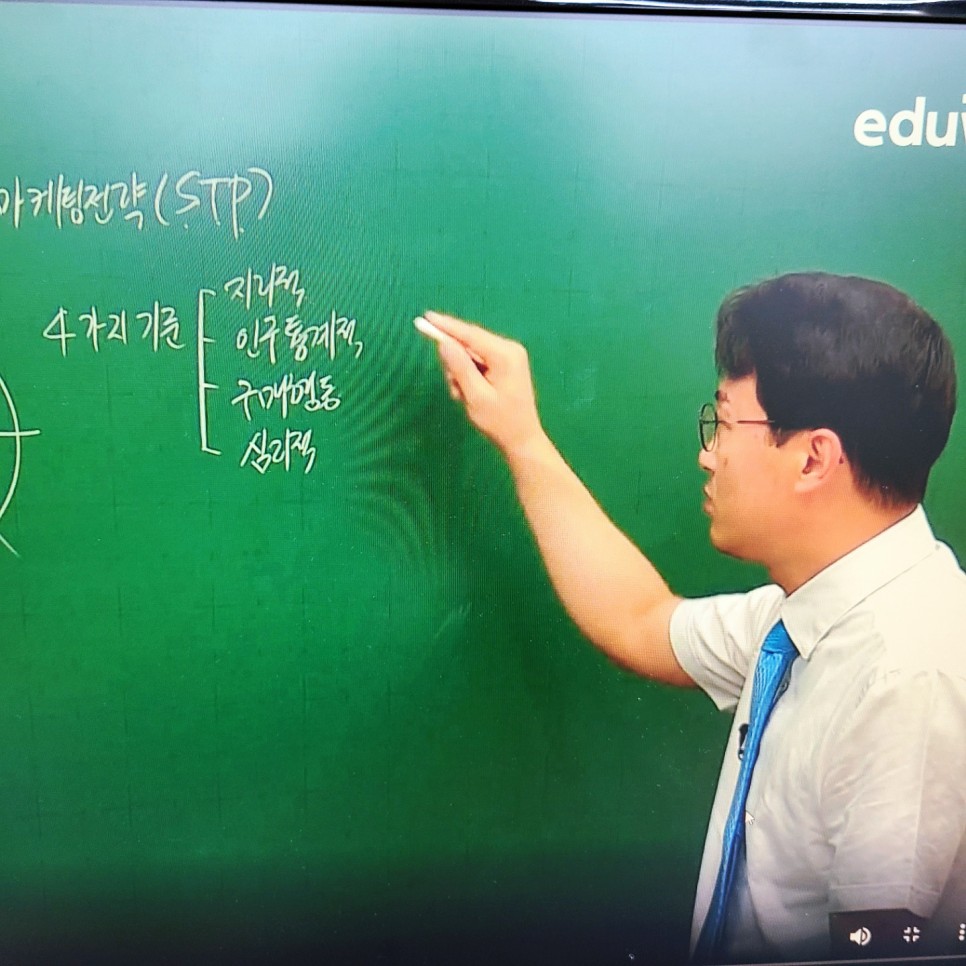 eduw
마케팅전략(STP)
4가지 기준
지리적
인구통계적
구매행동
심리적